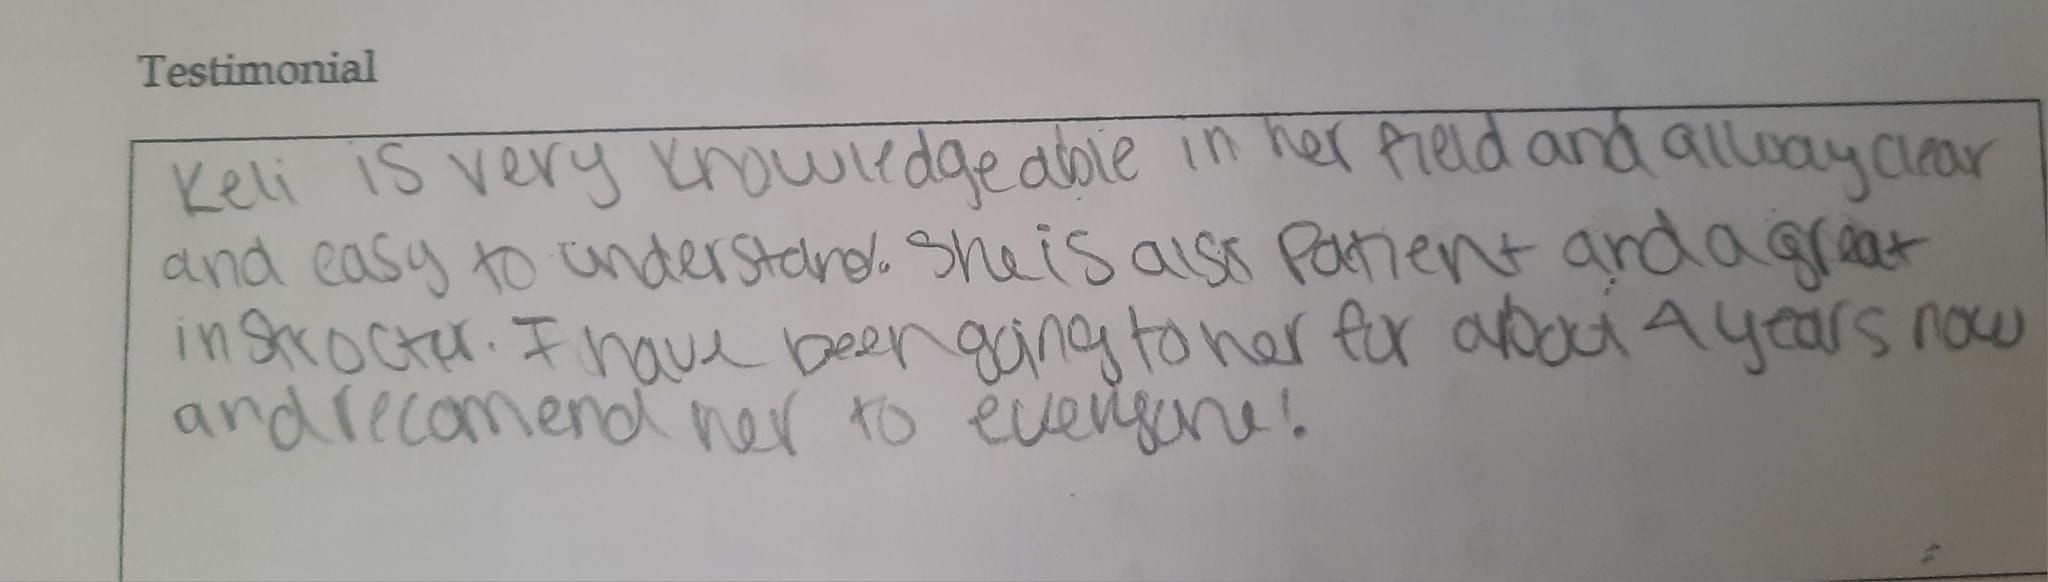 Testimonial
Keli is very knowledgeable in her field and allway clear
and easy to understand. She is also Patient and a great
instroctur. I have been going to her for about 4 years now
and recomend her to everyone!